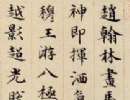 趙翰林畫
神即揮洒
穆王游八極
越影超光